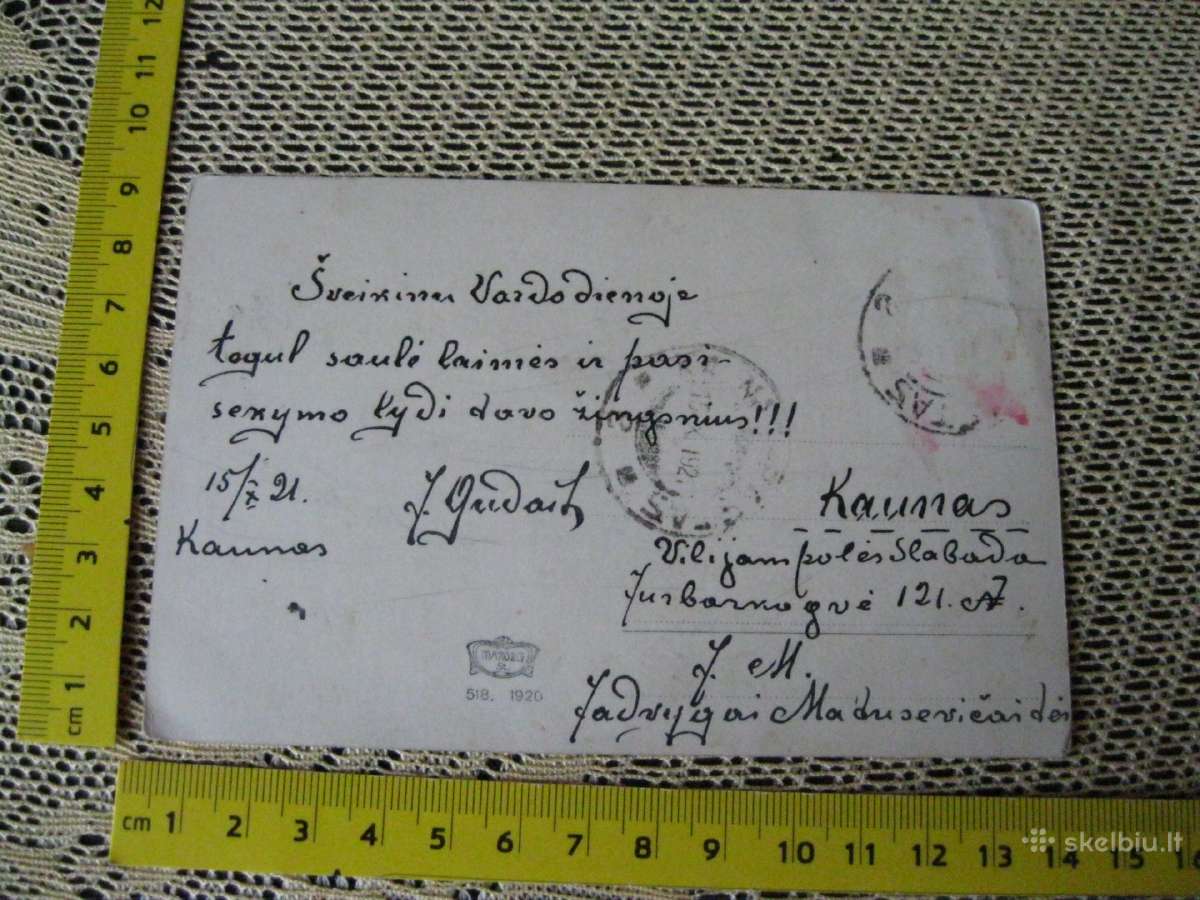 Šveikinu Vardo dienoje
tegul saulė laimės ir pasi-
sekymo lydi davo žingsnius!!!
15/X 21.
Kaunas
J. Gudait
Kaunas
Vilijampolės Slabada
Jurbarko gvė 121. A7.
J. M.
Jadvygai Madusevičaidei
518. 1920
TAS
192
cm 1 2 3 4 5 6 7 8 9 10 11 12
cm 1 2 3 4 5 6 7 8 9 10 11 12 13 14 15 16
skelbiu.lt